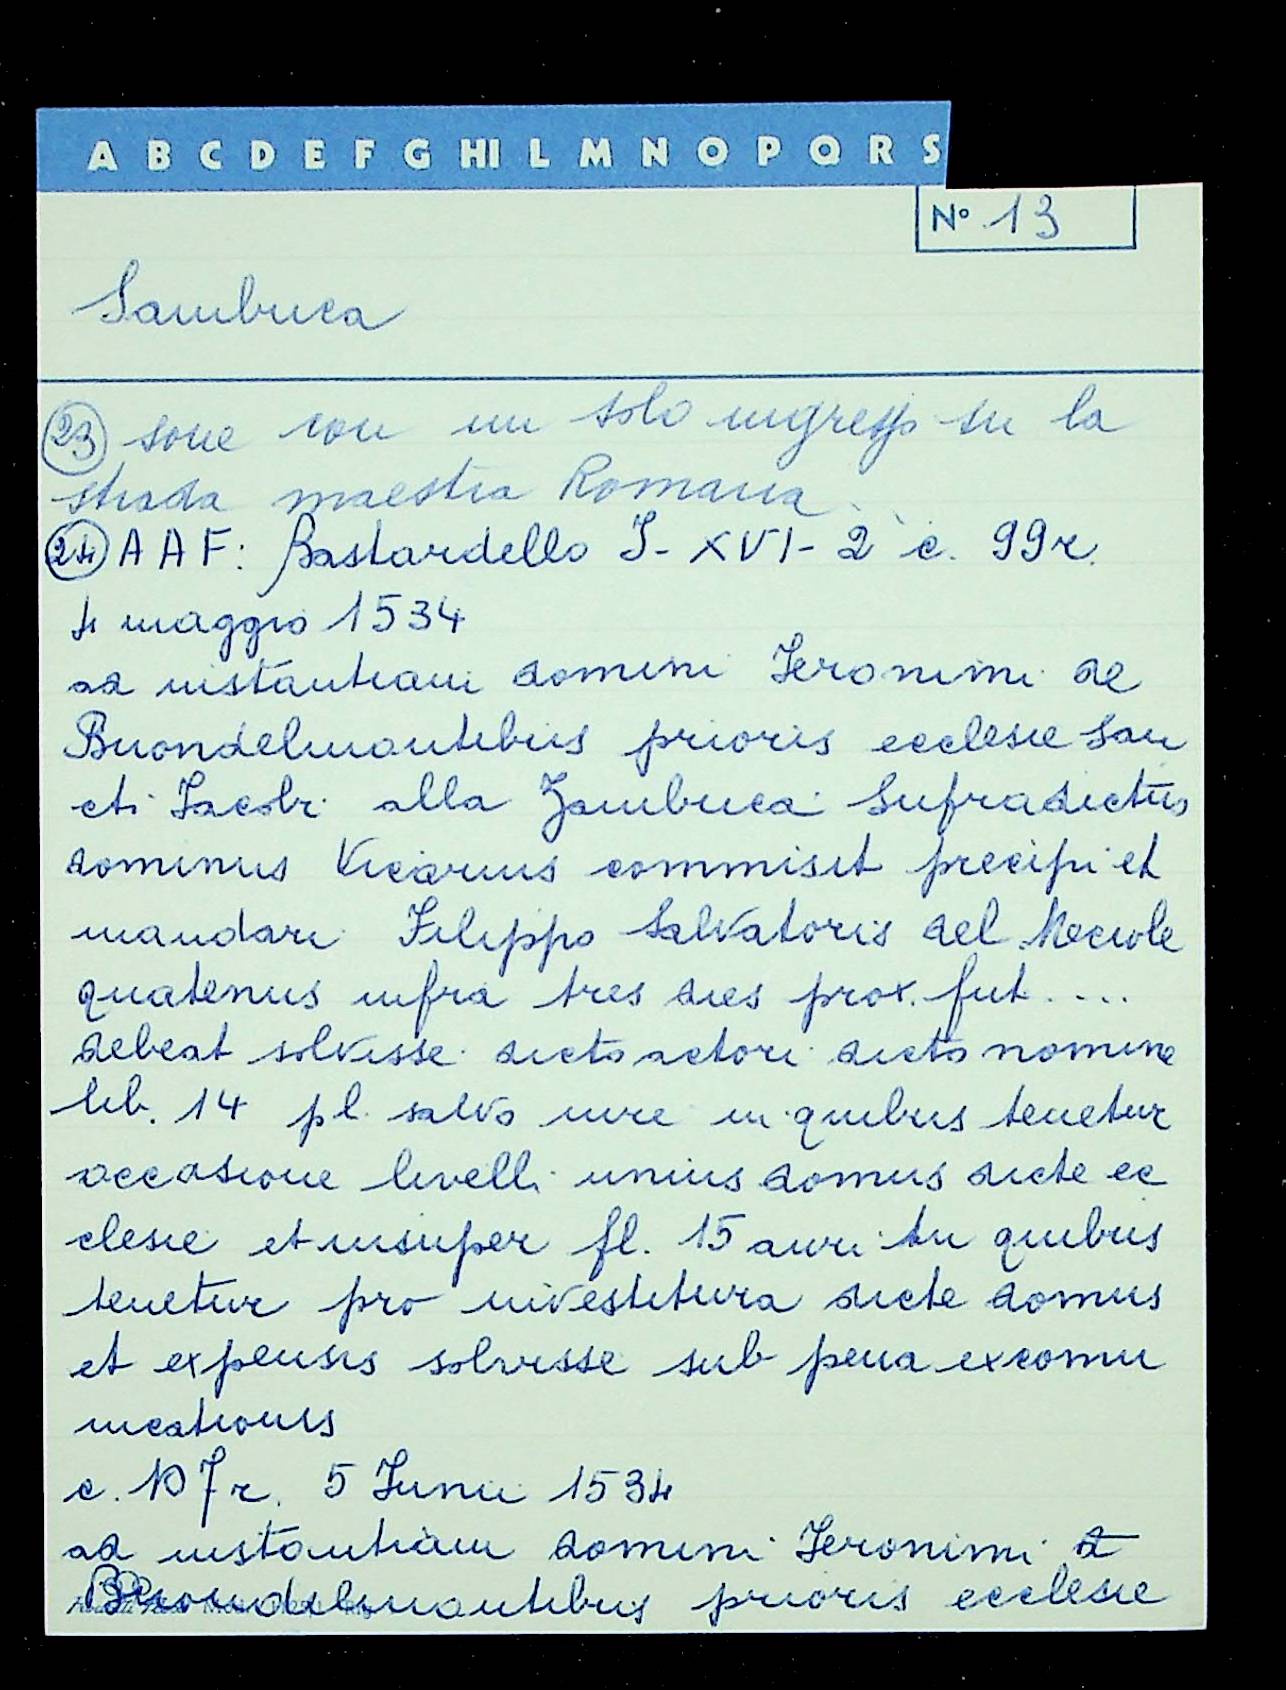 A B C D E F G HI L M N O P Q R S
N° 13
Sambuca
23 sone con un solo ingresso su la
strada maestra Romana..
24 A A F: Bastardello I-XVI-2 c. 99r.
4 maggio 1534
ad instantiam domini Ieronimi de
Buondelmontibus prioris ecclesie San
cti Iacobi alla Zambuca Sufradictus
dominus Vicarius commisit precipi et
mandari Filippo Salvatoris del
quatenus infra tres dies prox. fut....
debeat solvisse dicto actori dicto nomine
lib. 14 pl. salvo iure in quibus tenetur
occasione livelli unius domus dicte ec
clesie et insuper fl. 15 auri in quibus
tenetur pro investitura dicte domus
et expensis solvisse sub pena excomu
nicationis
c. 107r. 5 Iunii 1534
ad instantiam domini Ieronimi d
Buondelmontibus prioris ecclesie